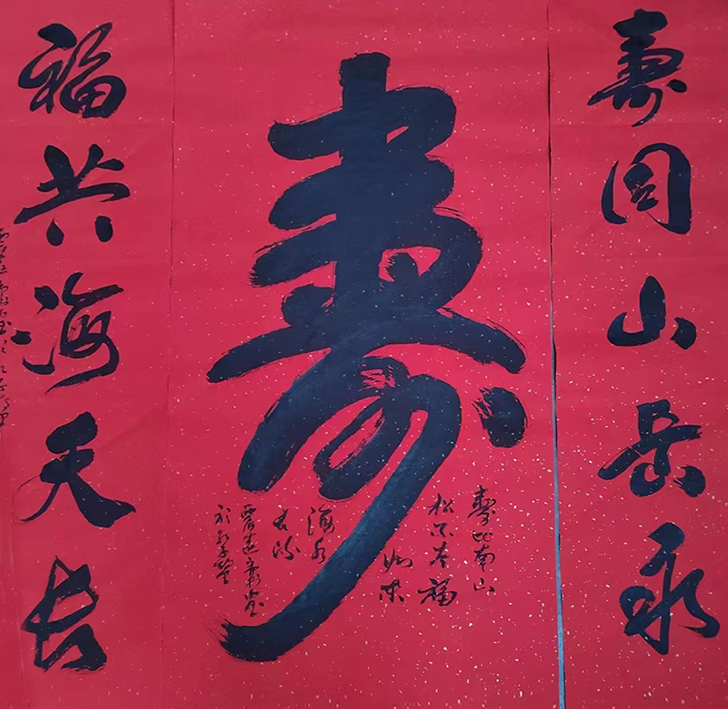 寿同山岳永
寿
寿比南山
松不老福
如东
海水
长流
福共海天长